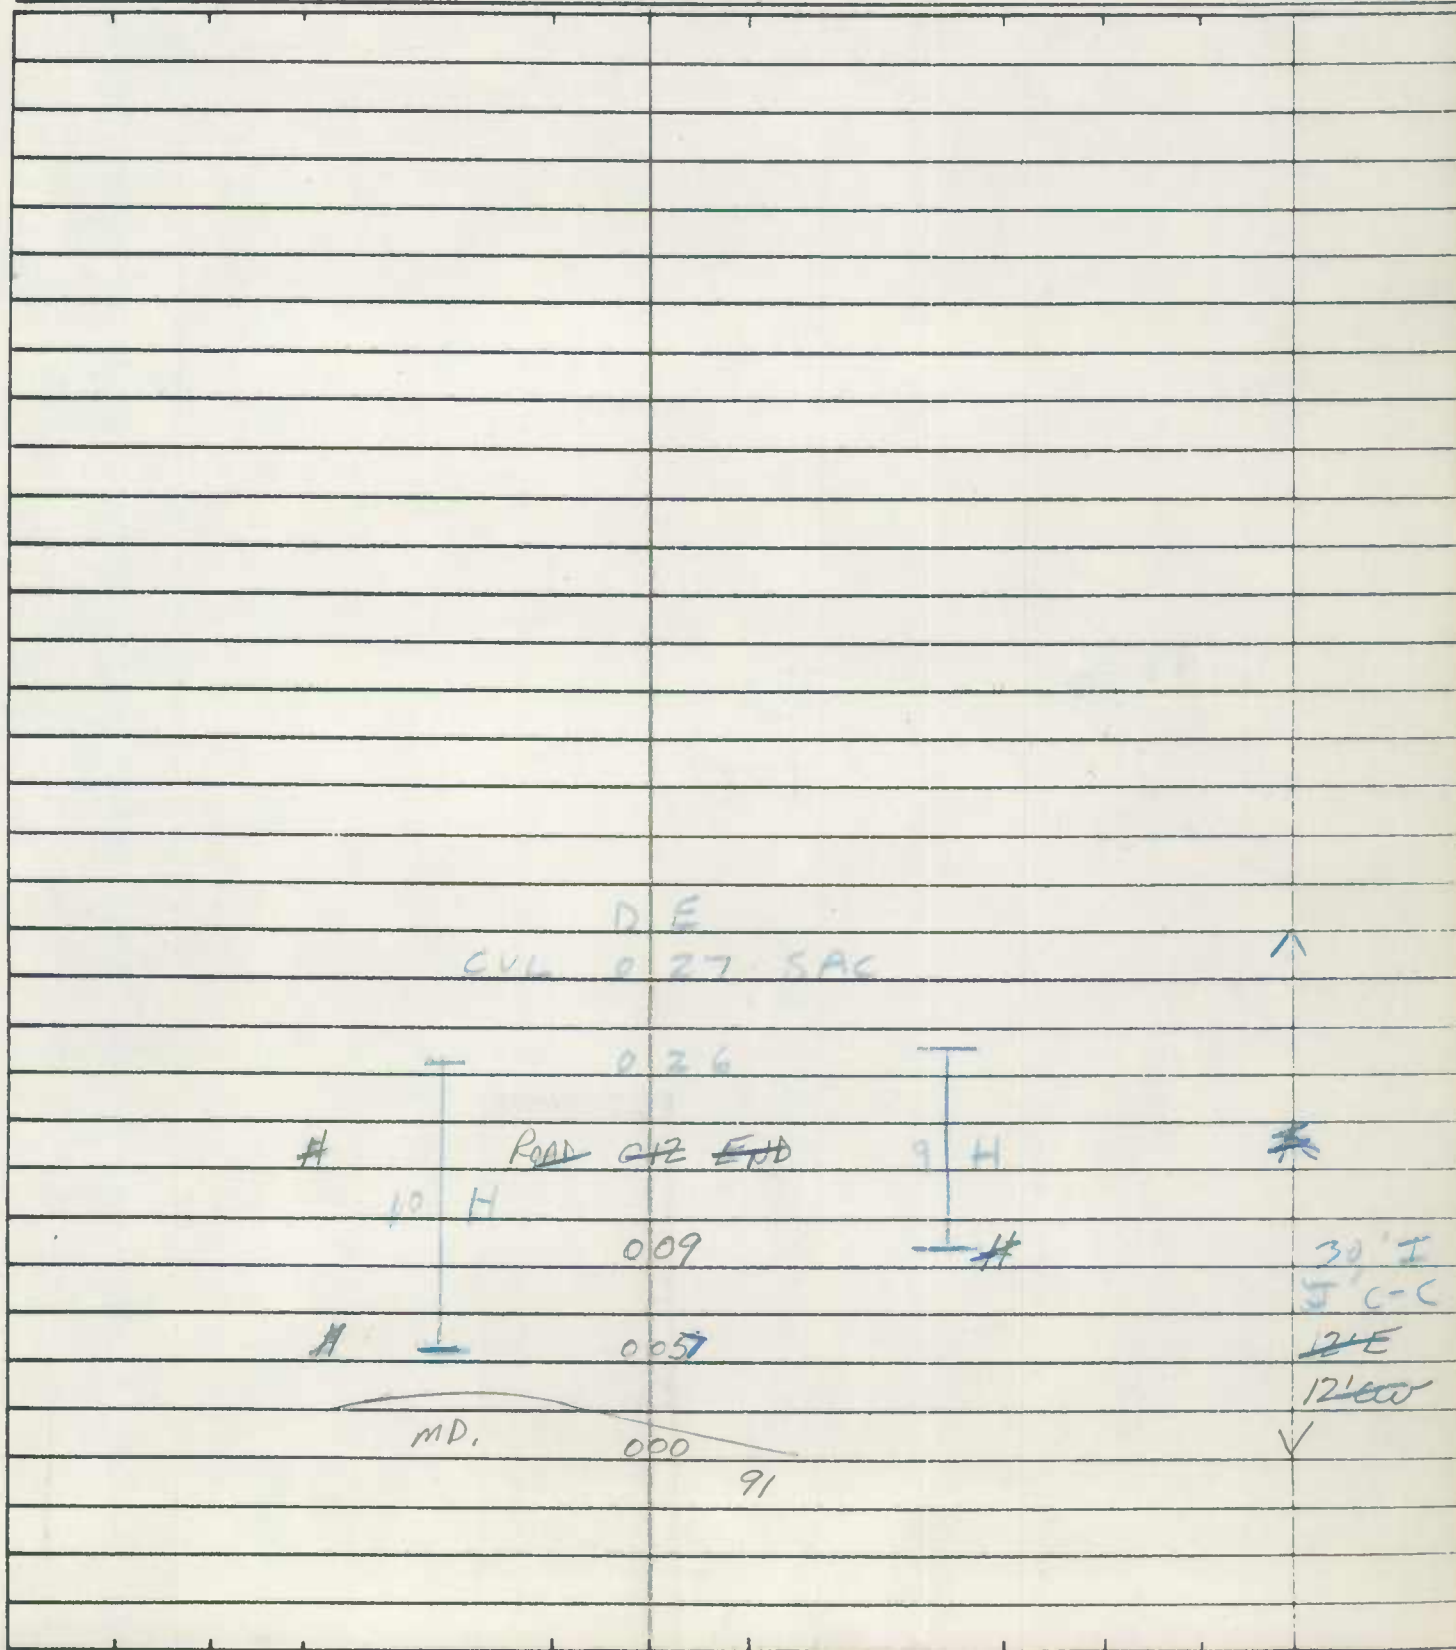 D E
CUL 0 27 SAC
0 26
H ROAD 012 END 9 H
10 H
0 09 H 30' I
C-C
H 0 057 12' E
12'
MD. 000
91